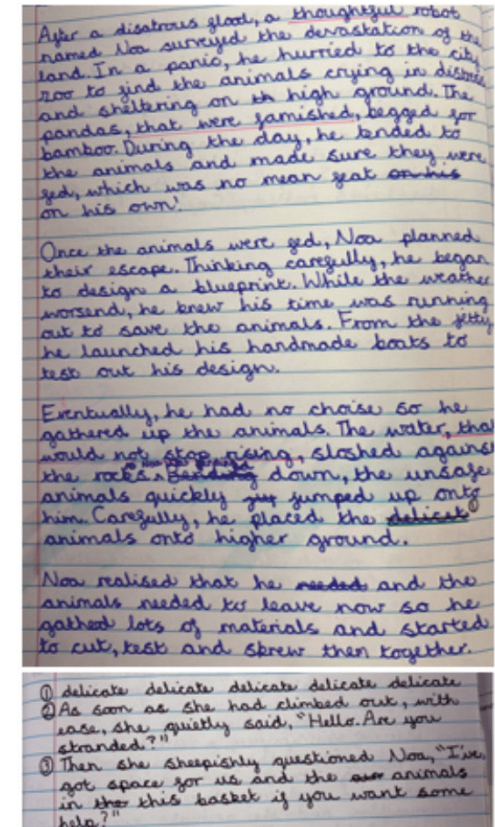 After a disatrous flood, a thoughtful robot
named Noa surveyed the devastation of the
land. In a panic, he hurried to the city
zoo to find the animals crying in distress
and sheltering on th high ground. The
pandas, that were famished, begged for
bamboo. During the day, he tended to
the animals and made sure they were
fed, which was no mean feat on his
on his own!
Once the animals were fed, Noa planned
their escape. Thinking carefully, he began
to design a blueprint. While the weather
worsend, he knew his time was running
out to save the animals. From the jetty
he launched his handmade boats to
test out his design.
Eventually, he had no choise so he
gathered up the animals. The water, that
would not stop rising, sloshed against
the rocks. Bending down, the unsafe
animals quickly jumped up onto
him. Carefully, he placed the delicat
animals onto higher ground.
Noa realised that he needed and the
animals needed to leave now so he
gathed lots of materials and started
to cut, test and skrew then together.
① delicate delicate delicate delicate delicate
② As soon as she had climbed out, with
ease, she quietly said, "Hello. Are you
stranded?"
③ Then she sheepishly questioned Noa, "I've
got space for us and the animals
in the this basket if you want some
help?"